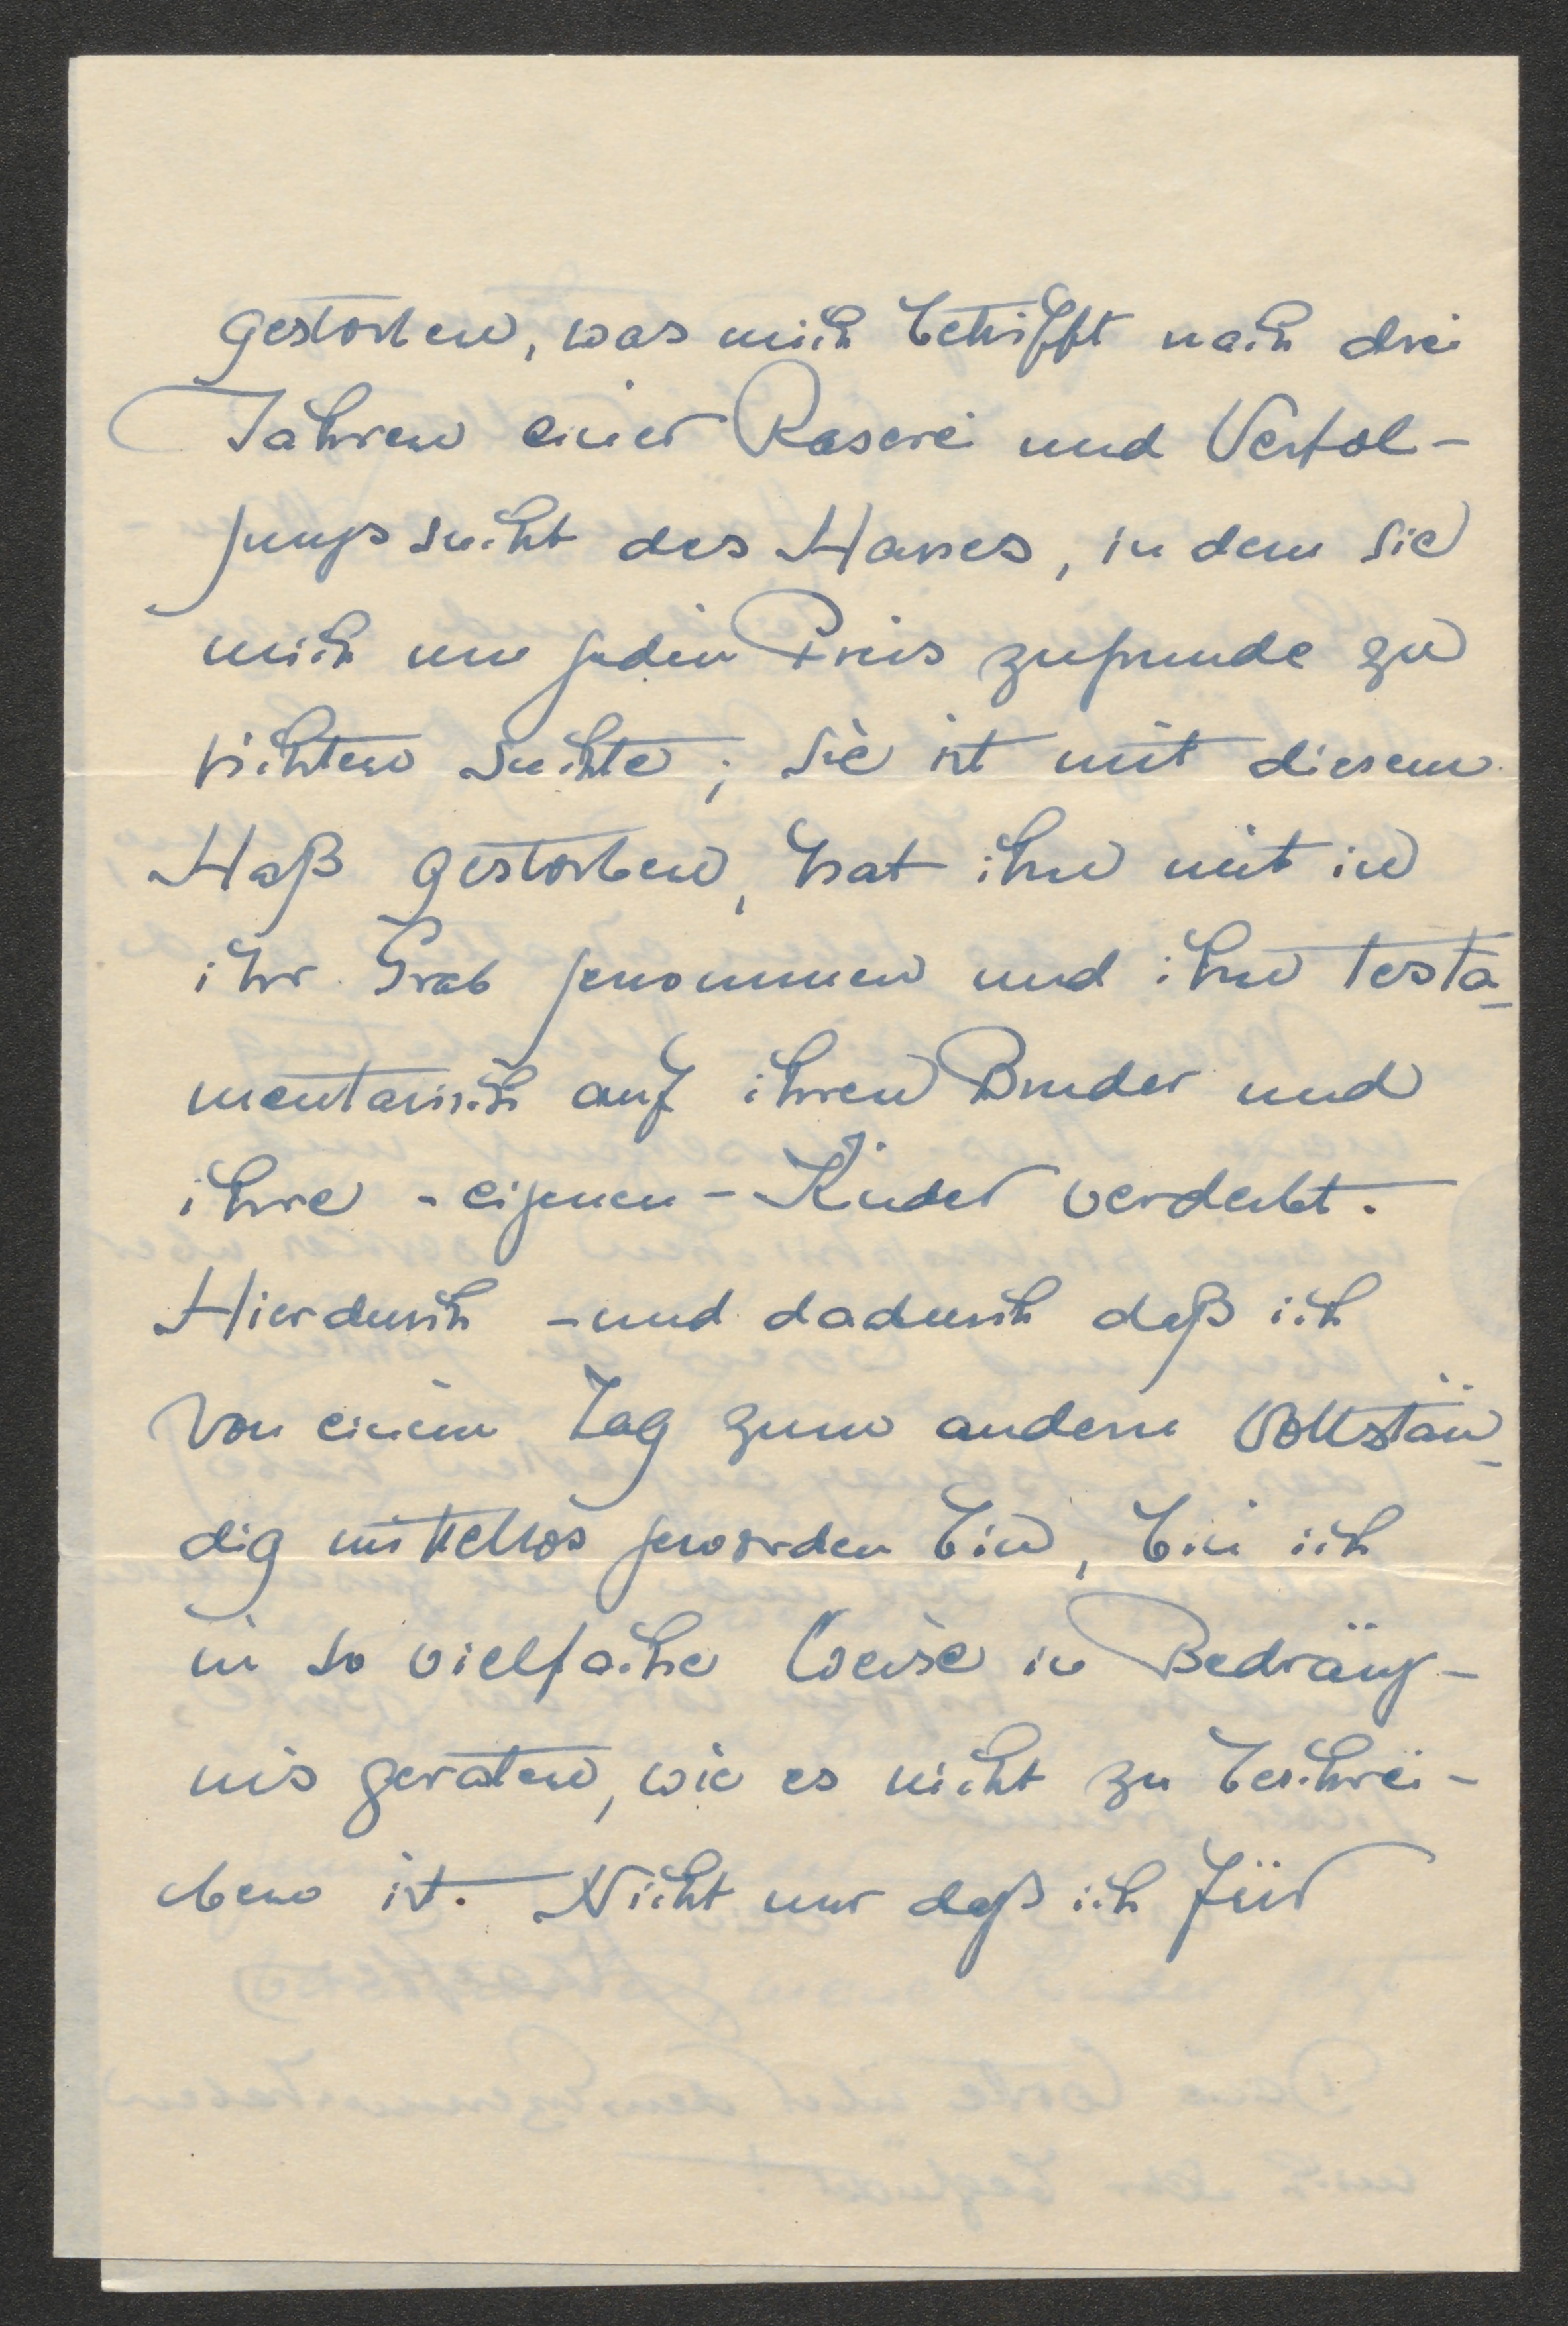 gestorben, was mich betrifft nach drei
Jahren einer Raserei und Verfol-
gungssucht des Hasses, in dem sie
mich um jeden Preis zugrunde zu
richten suchte; sie ist mit diesem
Haß gestorben, hat ihn mit in
ihr Grab genommen und ihn testa-
mentarisch auf ihren Bruder und
ihre - eigenen - Kinder vererbt.
Hierdurch - und dadurch daß ich
von einem Tag zum andern vollstän-
dig mittellos geworden bin, bin ich
in so vielfache Weise in Bedräng-
nis geraten, wie es nicht zu beschrei-
ben ist. Nicht nur daß ich für